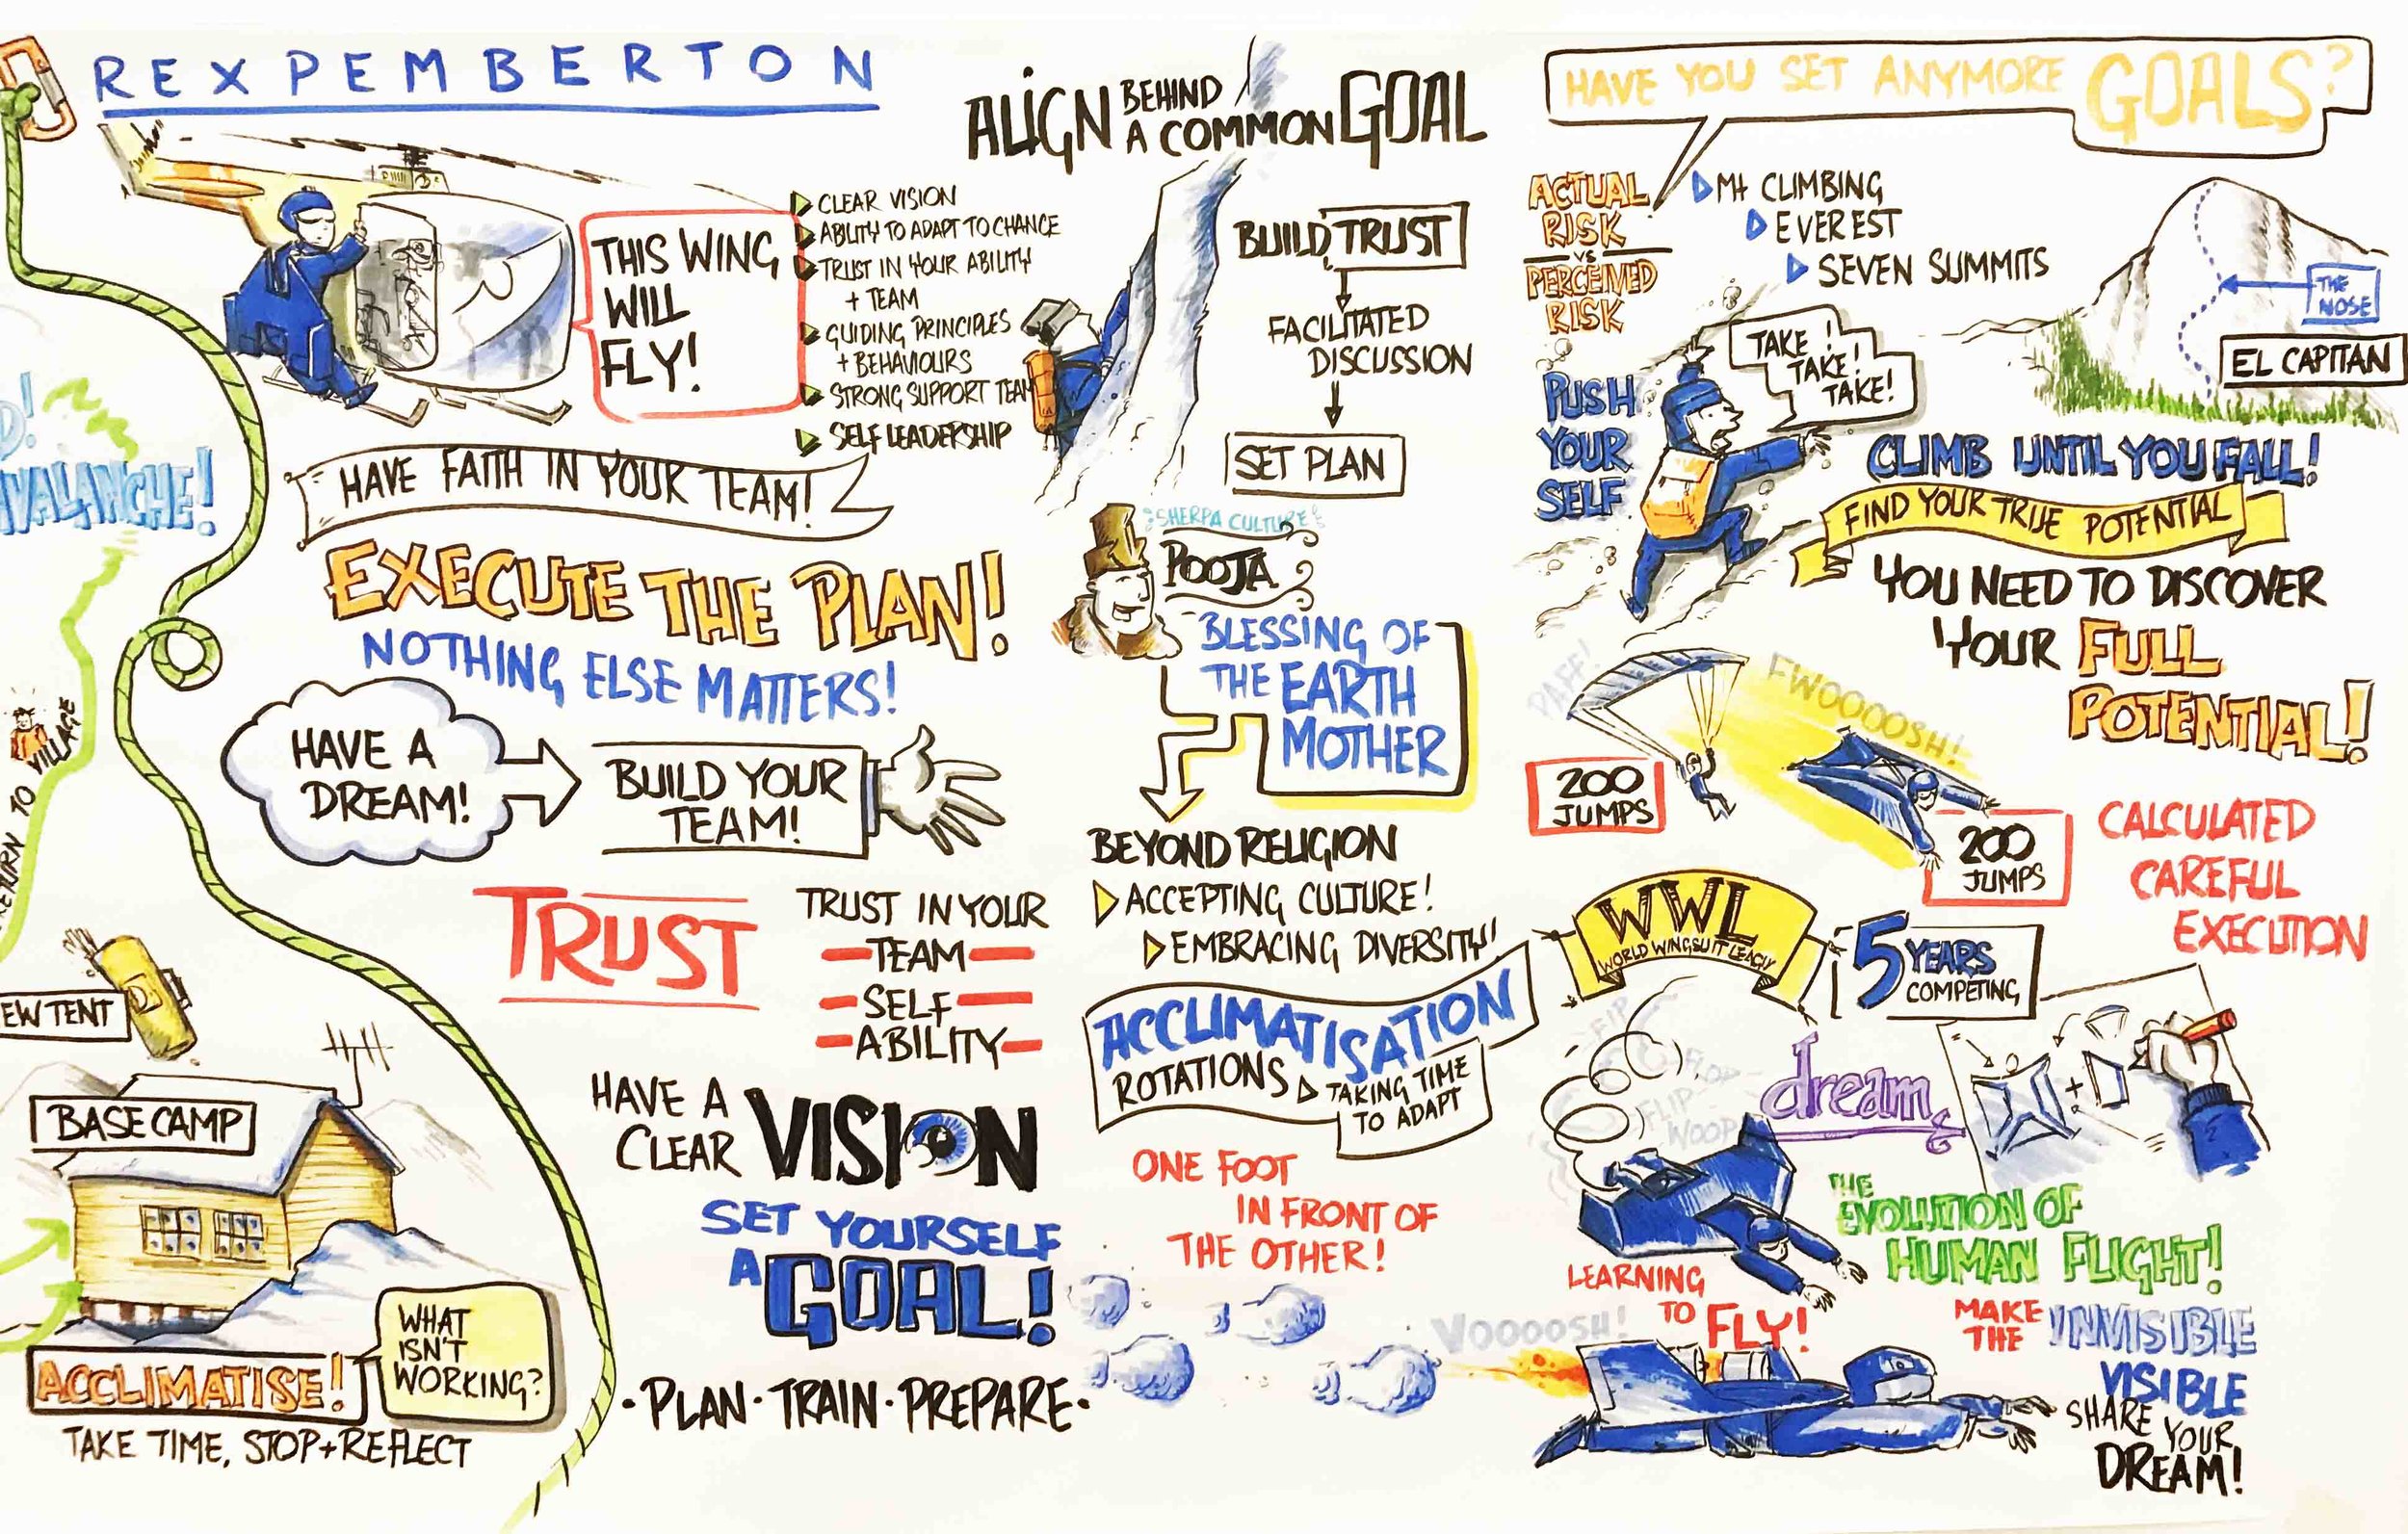 REX PEMBERTON
THIS WING
WILL
FLY!
CLEAR VISION
ABILITY TO ADAPT TO CHANCE
TRUST IN YOUR ABILITY
+ TEAM
GUIDING PRINCIPLES
+ BEHAVIOURS
STRONG SUPPORT TEAM
SELF LEADERSHIP
D!
AVALANCHE!
HAVE FAITH IN YOUR TEAM!
EXECUTE THE PLAN!
NOTHING ELSE MATTERS!
HAVE A
DREAM!
BUILD YOUR
TEAM!
RETURN TO VILLAGE
TRUST
TRUST IN YOUR
TEAM
SELF
ABILITY
EW TENT
BASE CAMP
ACCLIMATISE!
WHAT
ISN'T
WORKING?
TAKE TIME, STOP + REFLECT
HAVE A
CLEAR VISION
SET YOURSELF
A GOAL!
• PLAN • TRAIN • PREPARE •
ALIGN BEHIND
A COMMON GOAL
BUILD TRUST
FACILITATED
DISCUSSION
SET PLAN
SHERPA CULTURE
POOJA
BLESSING OF
THE EARTH
MOTHER
BEYOND RELIGION
ACCEPTING CULTURE!
EMBRACING DIVERSITY!
ACCLIMATISATION
ROTATIONS
TAKING TIME
TO ADAPT
ONE FOOT
IN FRONT OF
THE OTHER!
HAVE YOU SET ANYMORE GOALS?
ACTUAL
RISK
VS
PERCEIVED
RISK
Mt CLIMBING
EVEREST
SEVEN SUMMITS
THE
NOSE
EL CAPITAN
PUSH
YOUR
SELF
TAKE!
TAKE!
TAKE!
CLIMB UNTIL YOU FALL!
FIND YOUR TRUE POTENTIAL
YOU NEED TO DISCOVER
YOUR FULL
POTENTIAL!
PAFF!
FWOOOOSH!
200
JUMPS
200
JUMPS
CALCULATED
CAREFUL
EXECUTION
WWL
WORLD WINGSUIT LEAGUE
5 YEARS
COMPETING
FLIP
FLOP
FLIP
WOOP
dream
THE
EVOLUTION OF
HUMAN FLIGHT!
LEARNING
TO FLY!
VOOOOSH!
MAKE
THE INVISIBLE
VISIBLE
SHARE YOUR
DREAM!